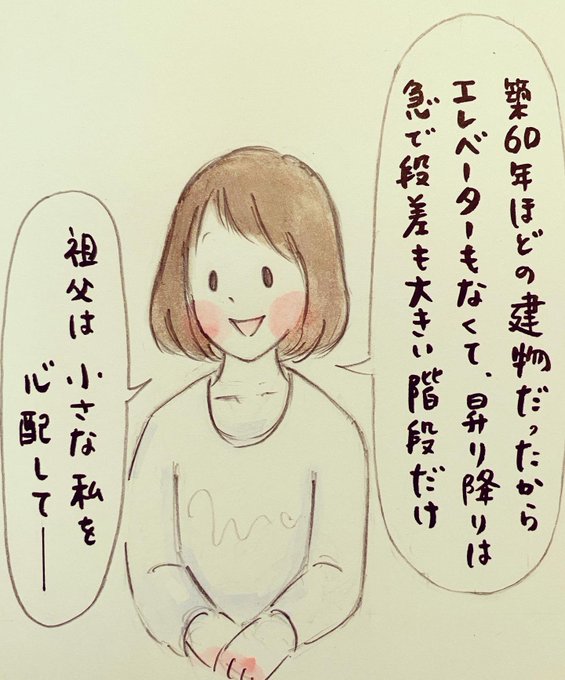 築60年ほどの建物だったから
エレベーターもなくて、昇り降りは
急で段差も大きい階段だけ
祖父は小さな私を
心配して──